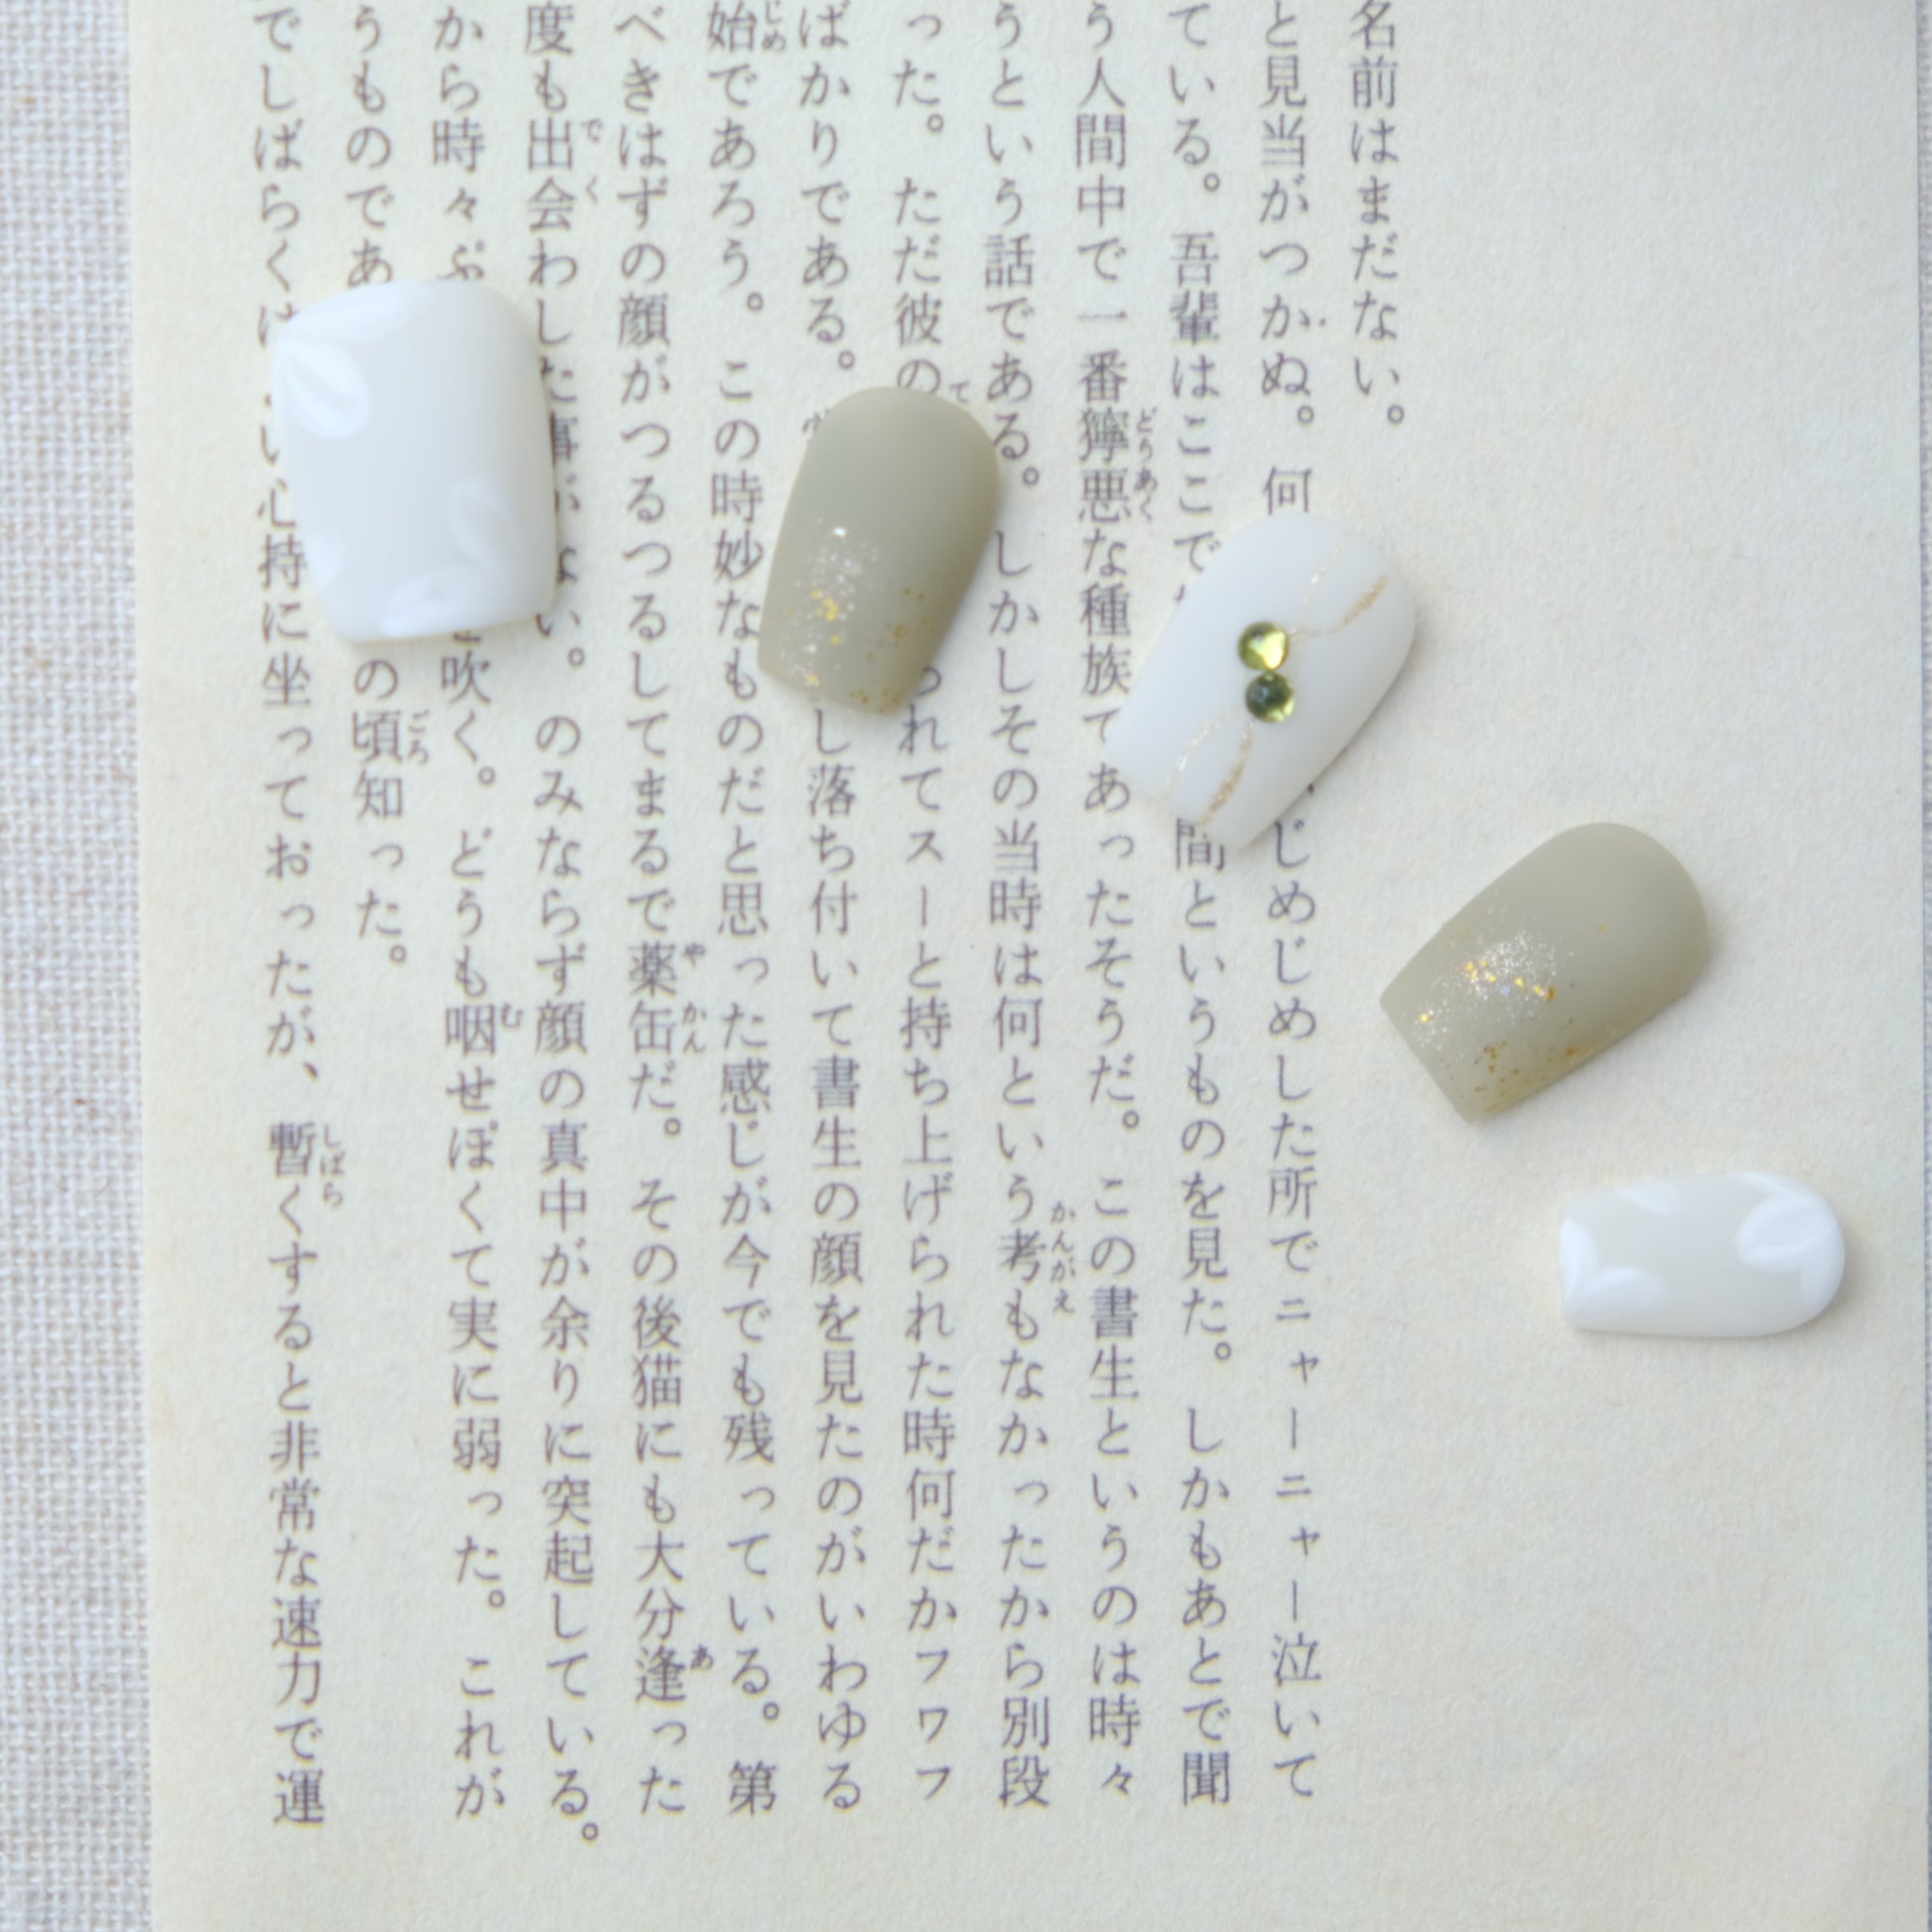 名前はまだない。
と見当がつかぬ。何 じめじめした所でニャーニャー泣いて
ている。吾輩はここで 間というものを見た。しかもあとで聞
う人間中で一番獰悪な種族であったそうだ。この書生というのは時々
うという話である。しかしその当時は何という考もなかったから別段
った。ただ彼の れてスーと持ち上げられた時何だかフワフ
ばかりである。 し落ち付いて書生の顔を見たのがいわゆる
始であろう。この時妙なものだと思った感じが今でも残っている。第
べきはずの顔がつるつるしてまるで薬缶だ。その後猫にも大分逢った
度も出会わした事がない。のみならず顔の真中が余りに突起している。
から時々ぷ を吹く。どうも咽せぽくて実に弱った。これが
うものであ の頃知った。
でしばらくは い心持に坐っておったが、暫くすると非常な速力で運